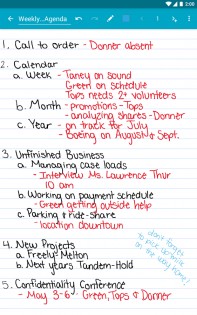 2:00
Weekly...Agenda
1. Call to order - Donner absent
2. Calendar
a. Week - Taney on sound
Green on schedule
Tops needs 2+ volunteers
b. Month - promotions - Tops
- analyzing shares - Donner
c. Year - on track for July
- Boeing on August & Sept.
3. Unfinished Business
a. Managing case loads
- Interview Ms. Lawrence Thur
10 am
b. Working on payment schedule
- Green getting outside help
c. Parking & ride-share
- location downtown
4. New Projects
a. Freely Melton
b. Next years Tandem-Hold
don't forget
to pick
on the way home!
5. Confidentiality Conference
- May 3-6. Green, Tops & Donner